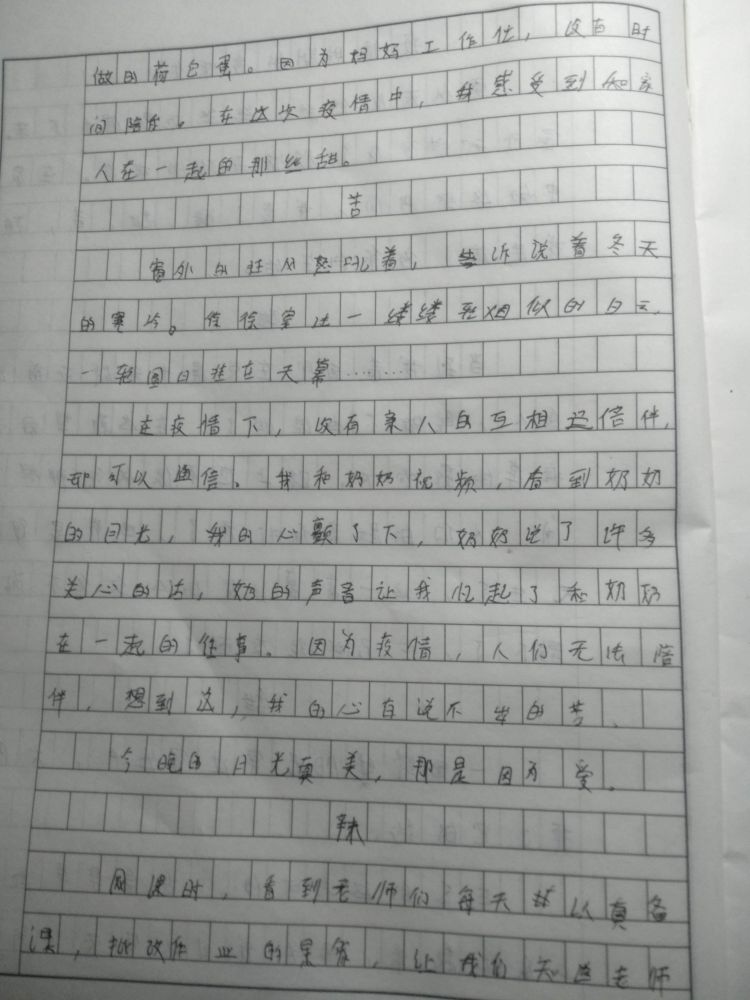 做的荷包蛋。因为妈妈工作忙，没有时
间陪我。在这次疫情中，我感受到和家
人在一起的那丝甜。
苦
窗外的狂风怒吼着，告诉说着冬天
的寒冷。徐徐穿过一缕缕轻烟似的白云，
一轮圆日挂在天幕……
在疫情下，没有亲人的互相陪伴，
却可以通信。我和奶奶视频，看到奶奶
的目光，我的心颤了下，奶奶说了许多
关心的话，奶的声音让我忆起了和奶奶
在一起的往事。因为疫情，人们无法陪
伴，想到这，我的心有说不出的苦、
今晚的月光真美，那是因为爱。
辣
网课时，看到老师们每天认真备
课，批改作业的，让我们知道老师